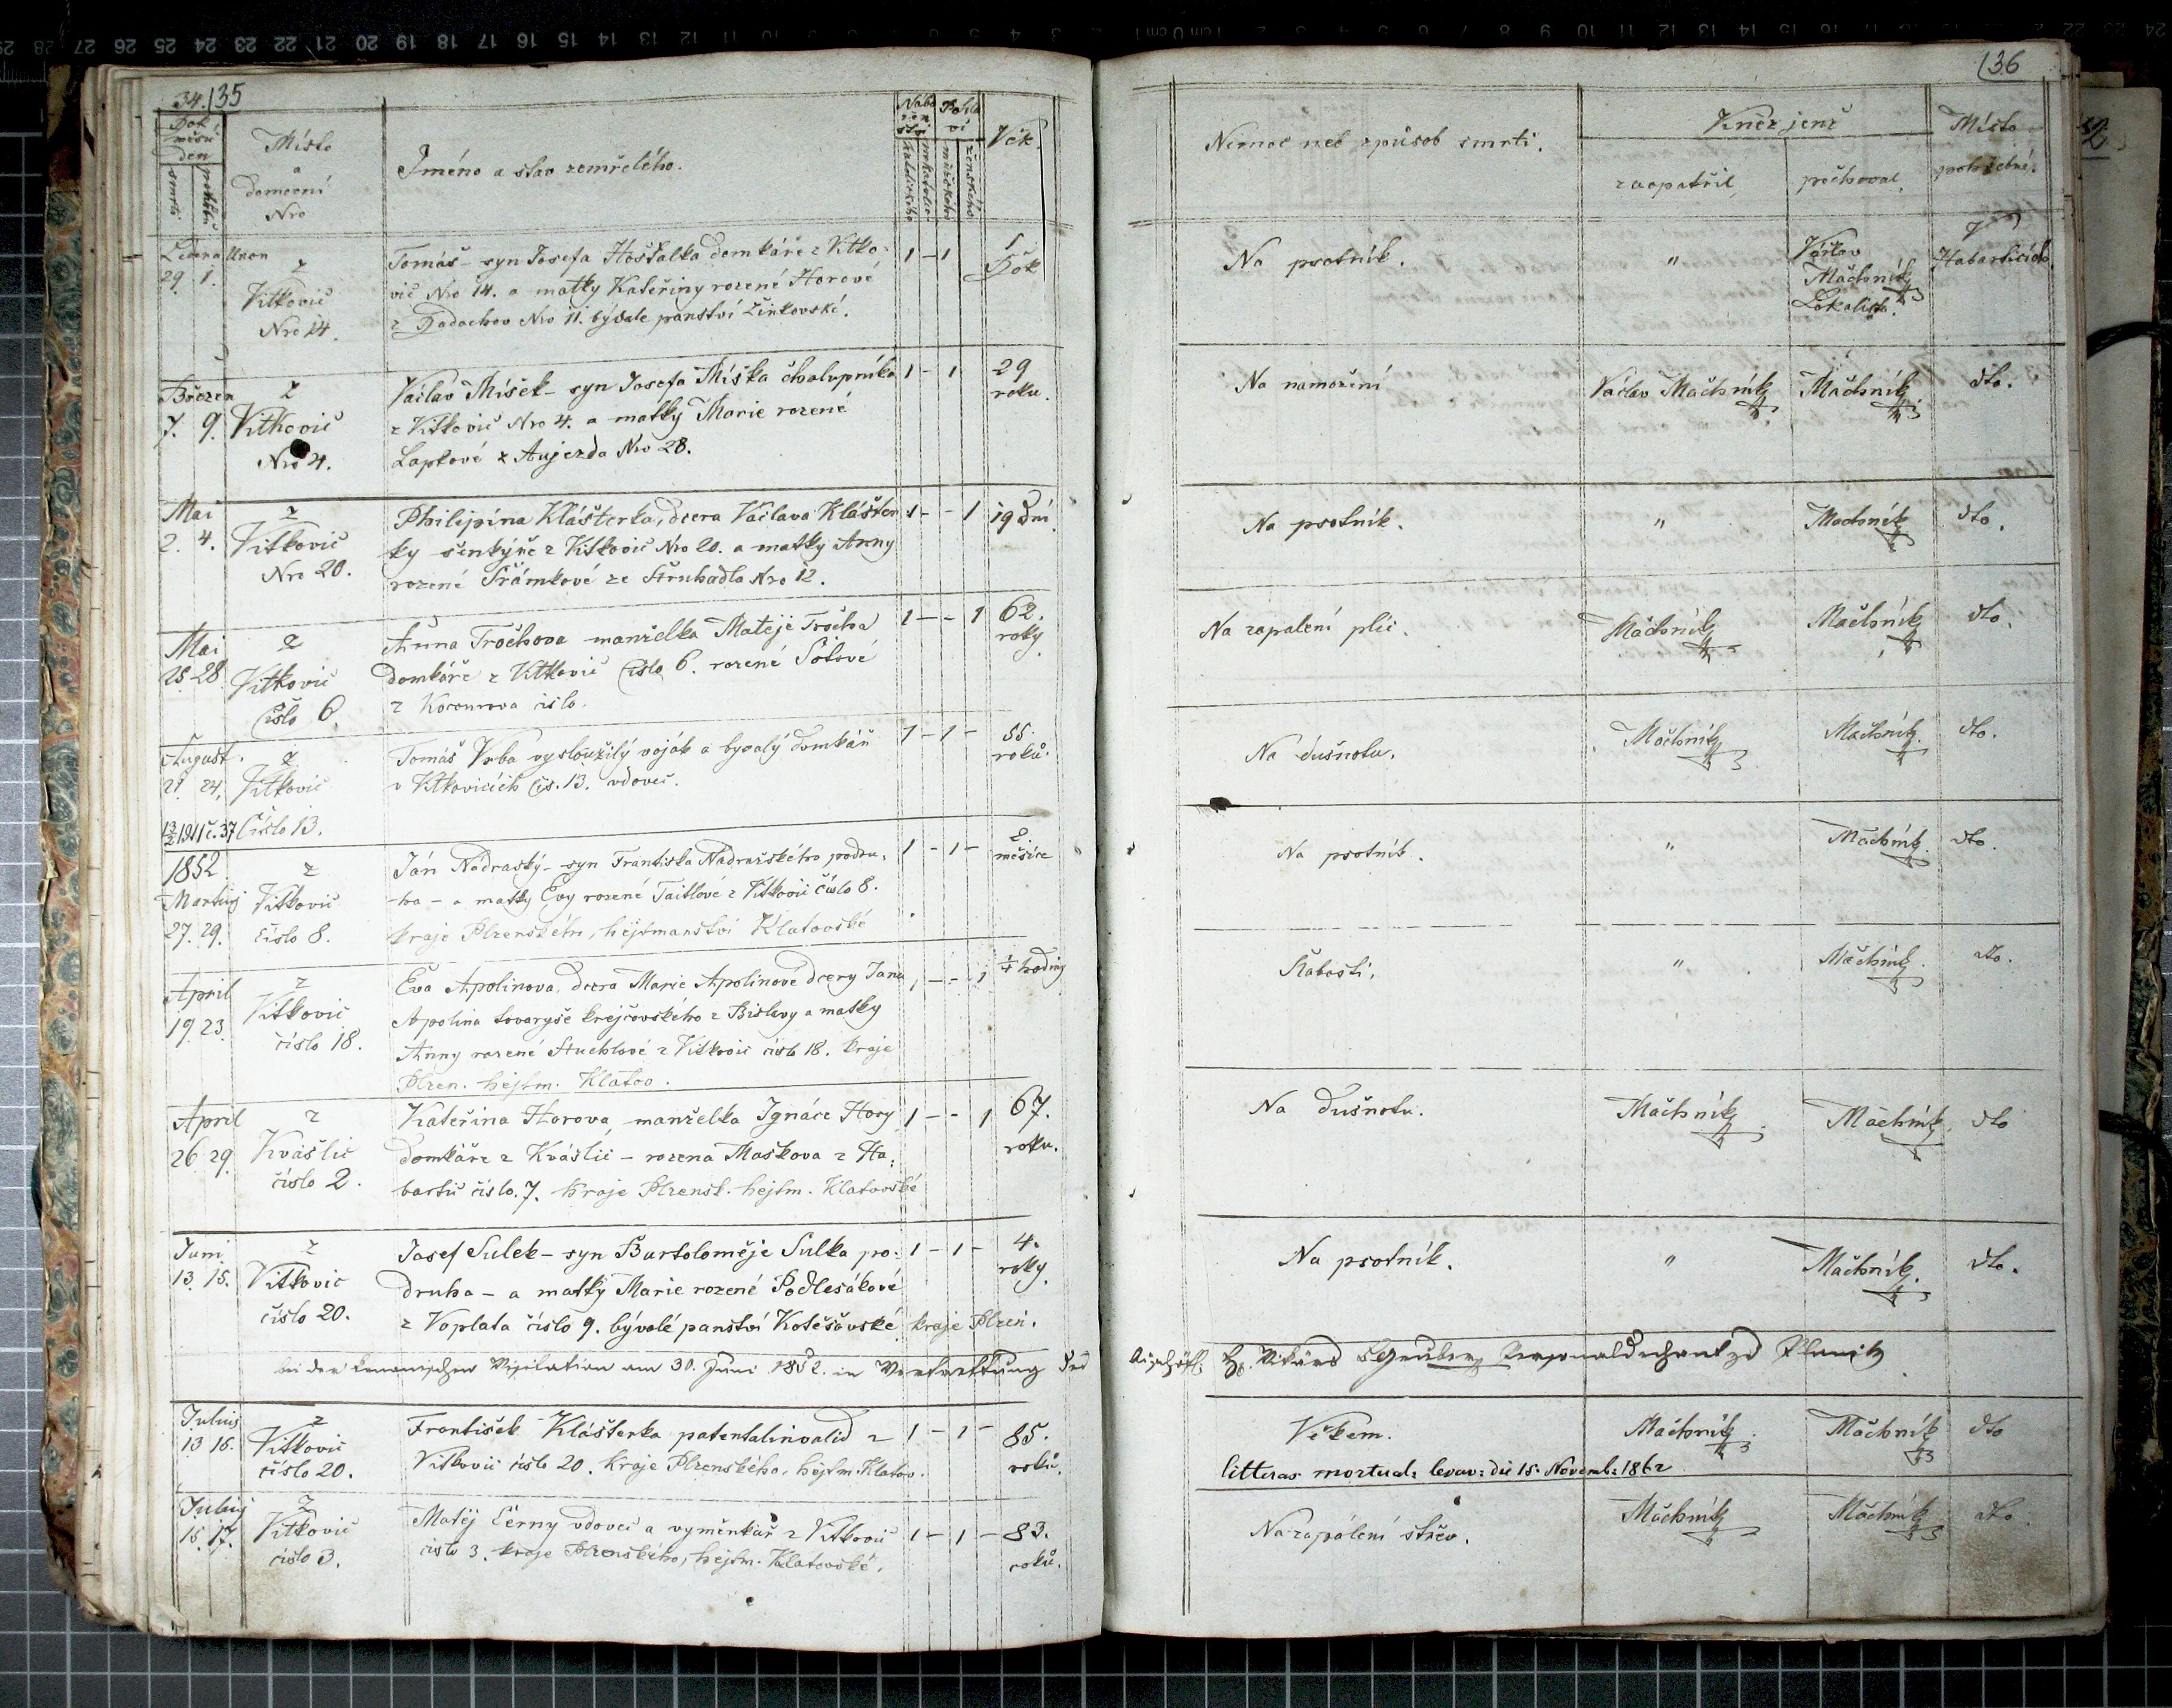 34. 135
Rok, měsíc den
smrti
pohřbu
Místo
a
domovní
Nro
Jméno a stav zemřelého.
Nábo
žen
ství
katolického
nekatolic
Pohla
ví
mužského
ženského
Věk.
Ledna Unor
29. 1.
z
Vitkovic
Nro 14.
Tomáš - syn Josefa Hošťalka domkáře z Vitko-
vic Nro 14. a matky Kateřiny rozené Horové
z Nro 11. býwale panství Žinkovské.
1 - 1
1
Rok
Březen
7. 9.
z
Vitkovic
Nro 4.
Václav Míšek - syn Josefa Míška chalupníka
z Vitkovic Nro 4. a matky Marie rozené
Lapkové z Aujezda Nro 28.
1 - 1
29
roku.
Mai
2. 4.
z
Vitkovic
Nro 20.
Philipina Klášterka, dcera Václava Klášter
ky šenkýře z Vitkovic Nro 20. a matky Anny
rozené Šrámkové ze Struhadla Nro 12.
1 - - 1
19 dní
Mai
25 28
z
Vitkovic
Číslo 6.
Anna Trochova manželka Mateje Trocha
domkáře z Vitkovic Číslo 6. rozené Šotové
z číslo.
1 - - 1
62.
roky.
August.
21. 24.
13/2 1911 č. 37
z
Vitkovic
Číslo 13.
Tomáš Vrba vysloužilý voják a byvalý domkář
v Vitkovicích Čis. 13. vdovec.
1 - 1 -
55.
roků.
1852
Martius
27. 29.
z
Vitkovic
číslo 8.
Ján Nádraský - syn Frantiska Nádražského podru-
ha - a matky Evy rozené Taitlové z Vitkovic číslo 8.
kraje Plzenského, hejtmanství Klatovské
1 - 1 -
2
měsíce
April
19. 23.
z
Vitkovic
číslo 18.
Eva Apolinova, dcera Marie Apolinové dcery Jana
Apolina tovaryše krejčovského z Bislavy a matky
Anny rozené Stuchlové z Vitkovic číslo 18. kraje
Plzen. hejtm. Klatov.
1 - - 1
1/4 hodiny
April
26 29.
z
Kvášlic
číslo 2.
Kateřina Horova, manželka Ignáce Hory
domkáře z Kvášlic - rozena Maškova z Ha-
bartic číslo. 7. kraje Plzensk. hejtm. Klatovské
1 - - 1
67.
roku.
Juni
13. 15.
z
Vitkovic
číslo 20.
Josef Sulek - syn Bartoloměje Sulka po-
druha - a matky Marie rozené Podlesákové
z Voplata číslo 9. bývalé panství Kotešovské, kraje Plzeň.
1 - 1 -
4.
roky.
bei der kanonischen Visitation am 30. Juni 1852. in Vertrettung des
Julius
13 16.
z
Vitkovic
číslo 20.
František Klášterka patentalinvalid z
Vitkovic číslo 20. kraje Plzenského, hejtm. Klatov.
1 - 1 -
85.
roků.
Julius
15. 17.
z
Vitkovic
číslo 3.
Matěj Černy vdovec a vyměnkař z Vitkovic
číslo 3. kraje Plzenského, hejtm. Klatovské.
1 - 1 -
83.
roků.
136
Nemoc neb způsob smrti.
Kněz jenž
zaopatřil,
pochoval,
Místo
pohřební.
Na psotník.
"
Václav
Máchník
Lokalista.
v
Habarticích
Na namožení
Václav Machník
Máchník
dto.
Na psotník.
"
Machník
dto.
Na zapalení plic.
Máchník
Máchník
dto.
Na dušnotu.
Máchník
Machník.
dto.
Na psotník.
"
Máchník.
dto.
Slabosti.
"
Máchník.
dto.
Na dušnotu.
Máchník
Máchník.
dto
Na psotník.
"
Máchník.
dto.
Bischöfl. H. Vikärs Gruber,
Věkem.
Máchník
Máchník
dto
litteras mortual: levav: die 15. Novemb: 1862
Na zapálení střev.
Máchník
Máchník
dto.